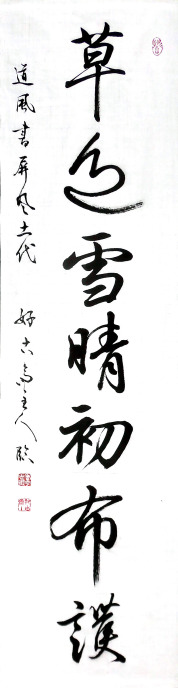 草色雪晴初布護
道風書屏風土代　好古齋主人臨